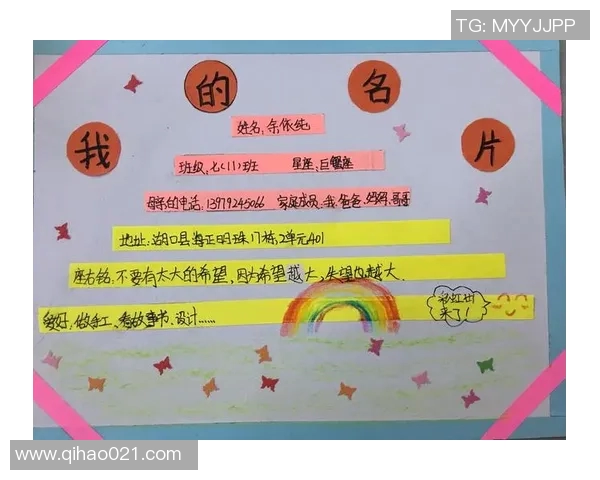 TG: MYYJJPP
我的名片
姓名:余依纯
班级:七(1)班 星座:巨蟹座
母亲的电话:13979245066 家庭成员:我、爸爸、妈妈、哥哥
地址:湖口县海正明珠17栋,2单元401
座右铭:不要有太大的希望,因为希望越大,失望也越大.
爱好:做手工、看故事书、设计......
彩虹出来了!
www.qihao021.com